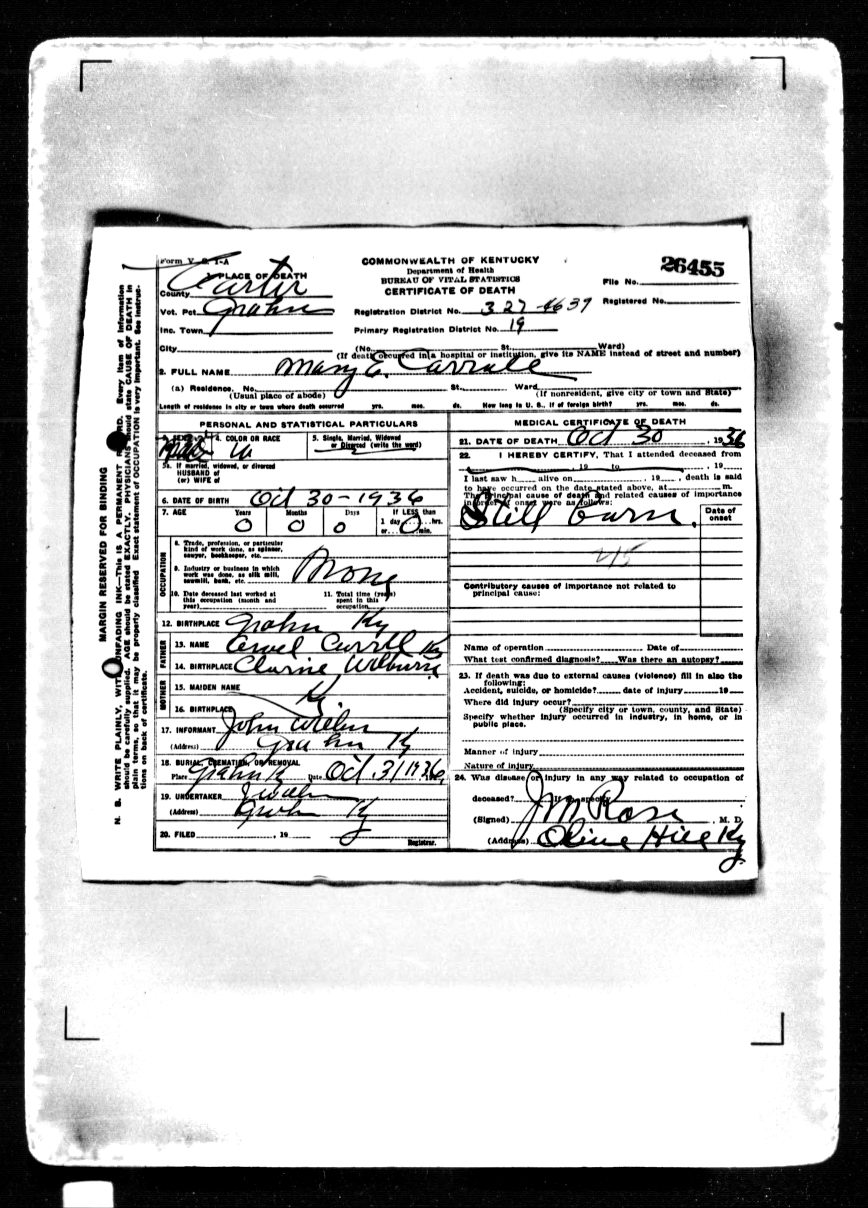 Form V. S. 1-A
COMMONWEALTH OF KENTUCKY
Department of Health
BUREAU OF VITAL STATISTICS
CERTIFICATE OF DEATH
26455
File No.
Registered No.
1. PLACE OF DEATH
County Carter
Vot. Pct. Grahn
Inc. Town
City
Registration District No. 327
Primary Registration District No. 19
(No. St. Ward)
(If death occurred in a hospital or institution, give its NAME instead of street and number)
2. FULL NAME Mary E. Carroll
(a) Residence. No. St. Ward
(Usual place of abode) (If nonresident, give city or town and State)
Length of residence in city or town where death occurred yrs. mos. ds. How long in U. S., if of foreign birth? yrs. mos. ds.
PERSONAL AND STATISTICAL PARTICULARS
3. SEX 4. COLOR OR RACE 5. Single, Married, Widowed or Divorced (write the word)
W
5a. If married, widowed, or divorced
HUSBAND of
(or) WIFE of
6. DATE OF BIRTH Oct 30-1936
7. AGE Years Months Days If LESS than
0 0 0 1 day hrs.
or 0 min.
OCCUPATION
8. Trade, profession, or particular
kind of work done, as spinner,
sawyer, bookkeeper, etc.
9. Industry or business in which
work was done, as silk mill,
sawmill, bank, etc.
None
10. Date deceased last worked at
this occupation (month and
year)
11. Total time (years)
spent in this
occupation
12. BIRTHPLACE Grahn Ky
FATHER
13. NAME Ky
14. BIRTHPLACE Wilburn
MOTHER
15. MAIDEN NAME
16. BIRTHPLACE Ky
17. INFORMANT John
(Address) Grahn Ky
18. BURIAL, CREMATION, OR REMOVAL
Place Grahn K Date Oct. 31 1936
19. UNDERTAKER
(Address) Grahn Ky
20. FILED , 19
Registrar.
MEDICAL CERTIFICATE OF DEATH
21. DATE OF DEATH Oct 30, 1936
22. I HEREBY CERTIFY, That I attended deceased from
, 19 to , 19
I last saw h alive on , 19 , death is said
to have occurred on the date stated above, at m.
The principal cause of death and related causes of importance
in order of onset were as follows:
Still born.
Date of
onset
Contributory causes of importance not related to
principal cause:
Name of operation Date of
What test confirmed diagnosis? Was there an autopsy?
23. If death was due to external causes (violence) fill in also the
following:
Accident, suicide, or homicide? date of injury 19
Where did injury occur?
(Specify city or town, county, and State)
Specify whether injury occurred in industry, in home, or in
public place.
Manner of injury
Nature of injury
24. Was disease or injury in any way related to occupation of
deceased? If so, specify
(Signed) J M Rose, M. D.
(Address) Olive Hill Ky
MARGIN RESERVED FOR BINDING
N. B. WRITE PLAINLY, WITH UNFADING INK—This is a PERMANENT RECORD. Every item of information
should be carefully supplied. AGE should be stated EXACTLY. PHYSICIANS should state CAUSE OF DEATH in
plain terms, so that it may be properly classified. Exact statement of OCCUPATION is very important. See instruc-
tions on back of certificate.